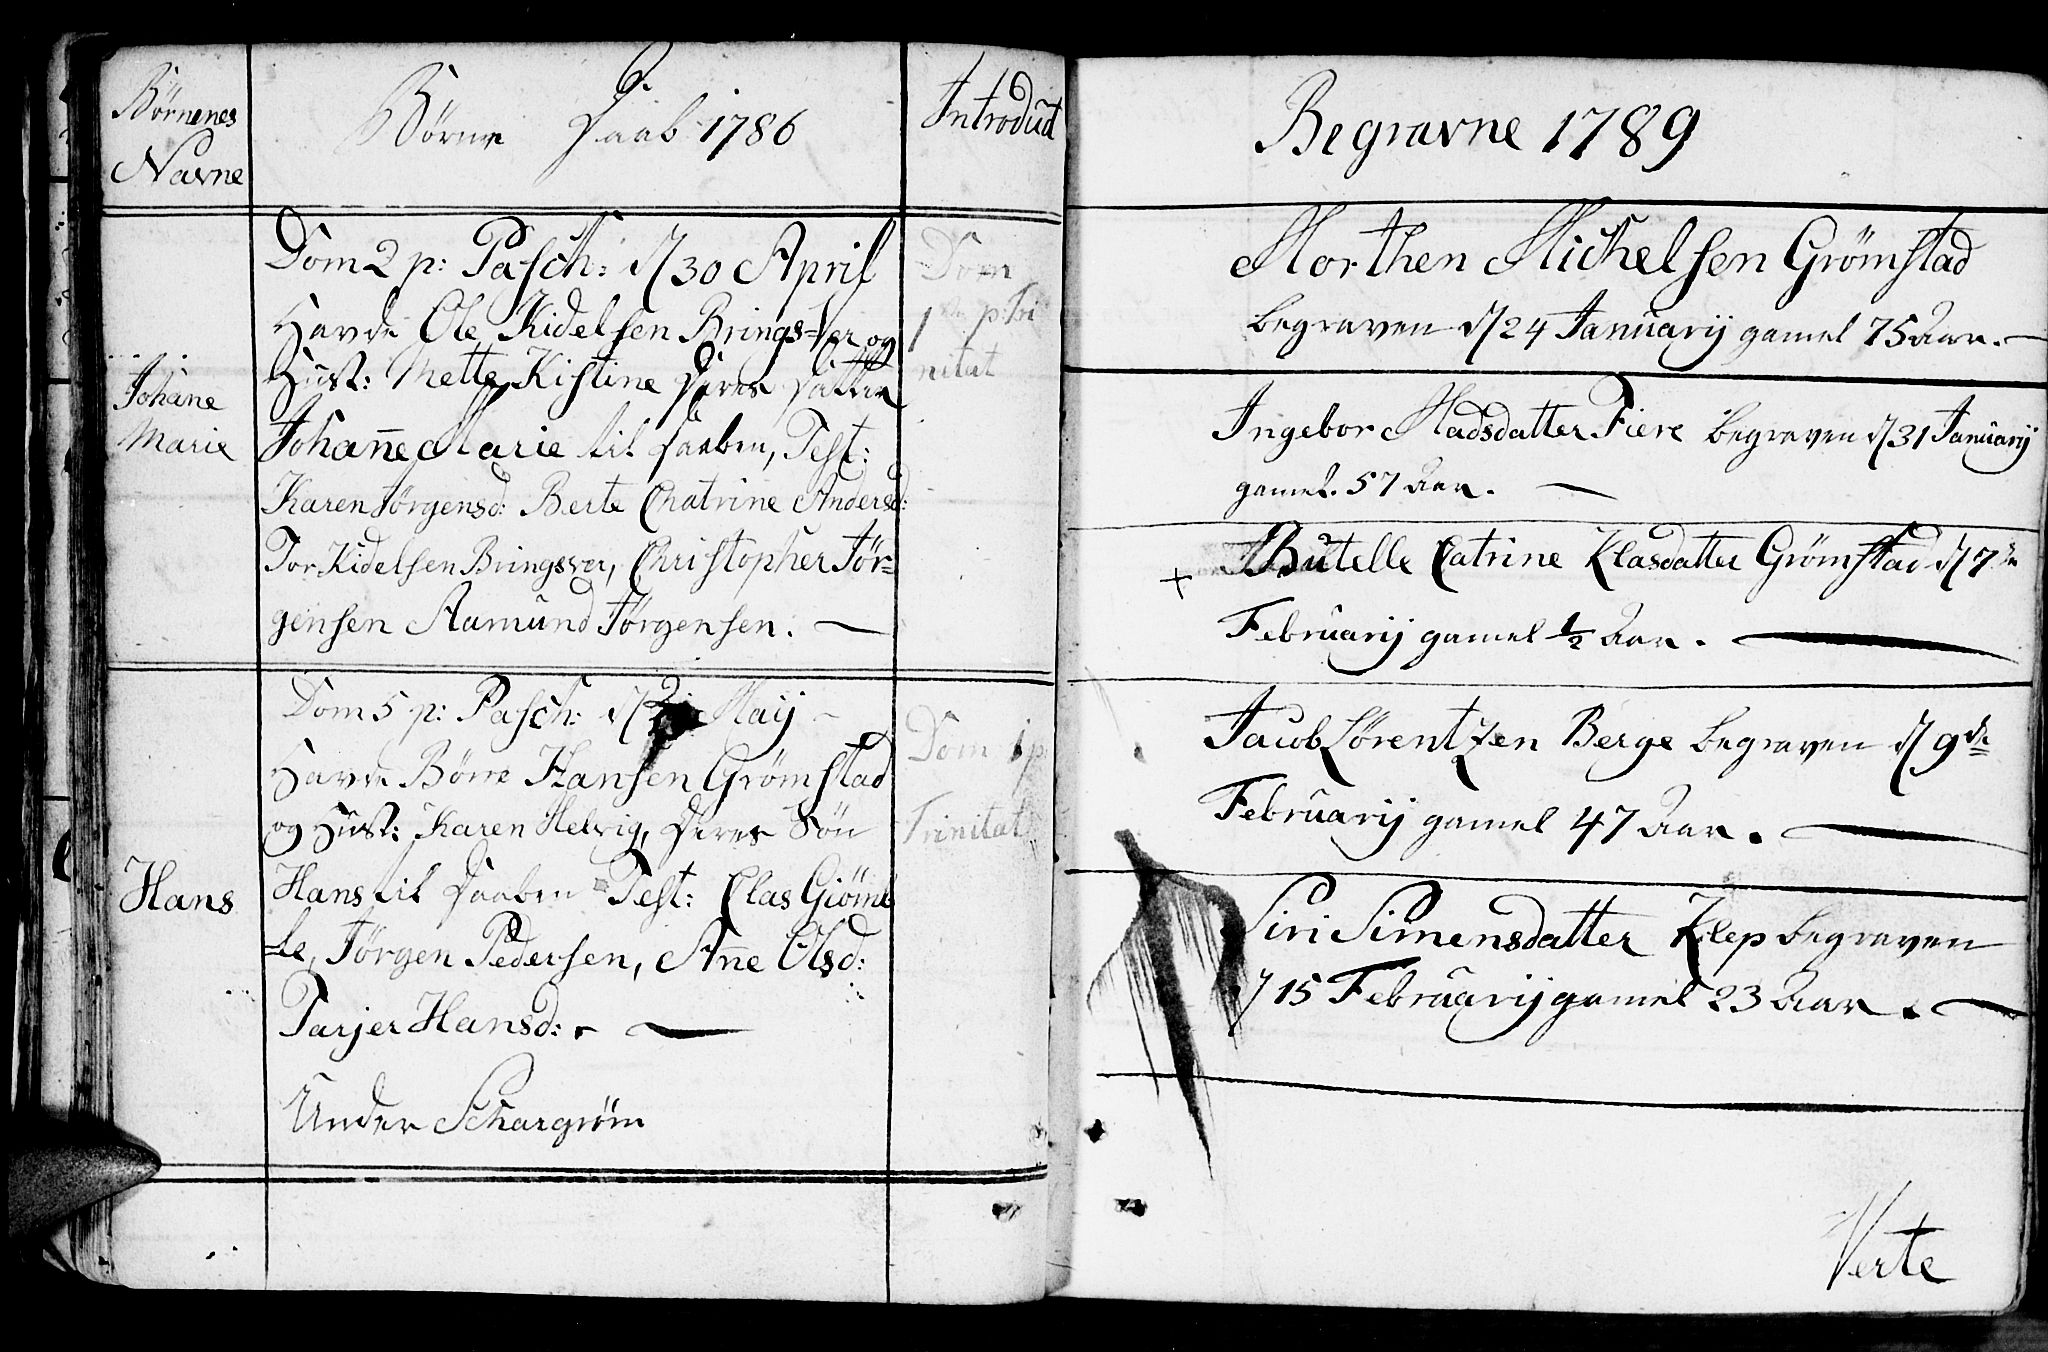 Børnenes
Navne
Børne Daab 1786
Introduct
Dom 2 p: Pasch: d 30 April
Havde Ole Kidelsen Brings=Ver og
Hust: Mette Kistine Deres Datter
Johañe Marie til Daaben, Test:
Karen Jørgensd: Berte Chatrine Andersd:
Tor Kidelsen Bringsver, Christopher Jør=
gensen Aamund Jørgensen.
Johane
Marie
Dom
1ste p: Tri
nitat
Dom 5 p: Pasch: d 21 Maij
Havde Børre Hansen Grømstad
og Hust: Karen Helvig, Deres Søn
Hans til Daaben Test: Clas Giøme
=le, Jørgen Pedersen, Añe Olsd:
Tarjer Hansd:
Under
Hans
Dom 1 p
Trinitat
Begravne 1789
Morthen Michelsen Grømstad
begraven d 24 Januarij gamel 75 Aar.
Ingebor Madsdatter Fiere begraven d 31 Januarij
gamel. 57 Aar.
+ Butelle Catrine Klasdatter Grømstad d 7de
Februarij gamel 1/2 Aar.
Jacob Lørentzen Berge begraven d 9de
Februarij gamel 47 Aar.
Siri Simensdatter Klep begraven
d 15 Februarij gamel 23 Aar.
Verte